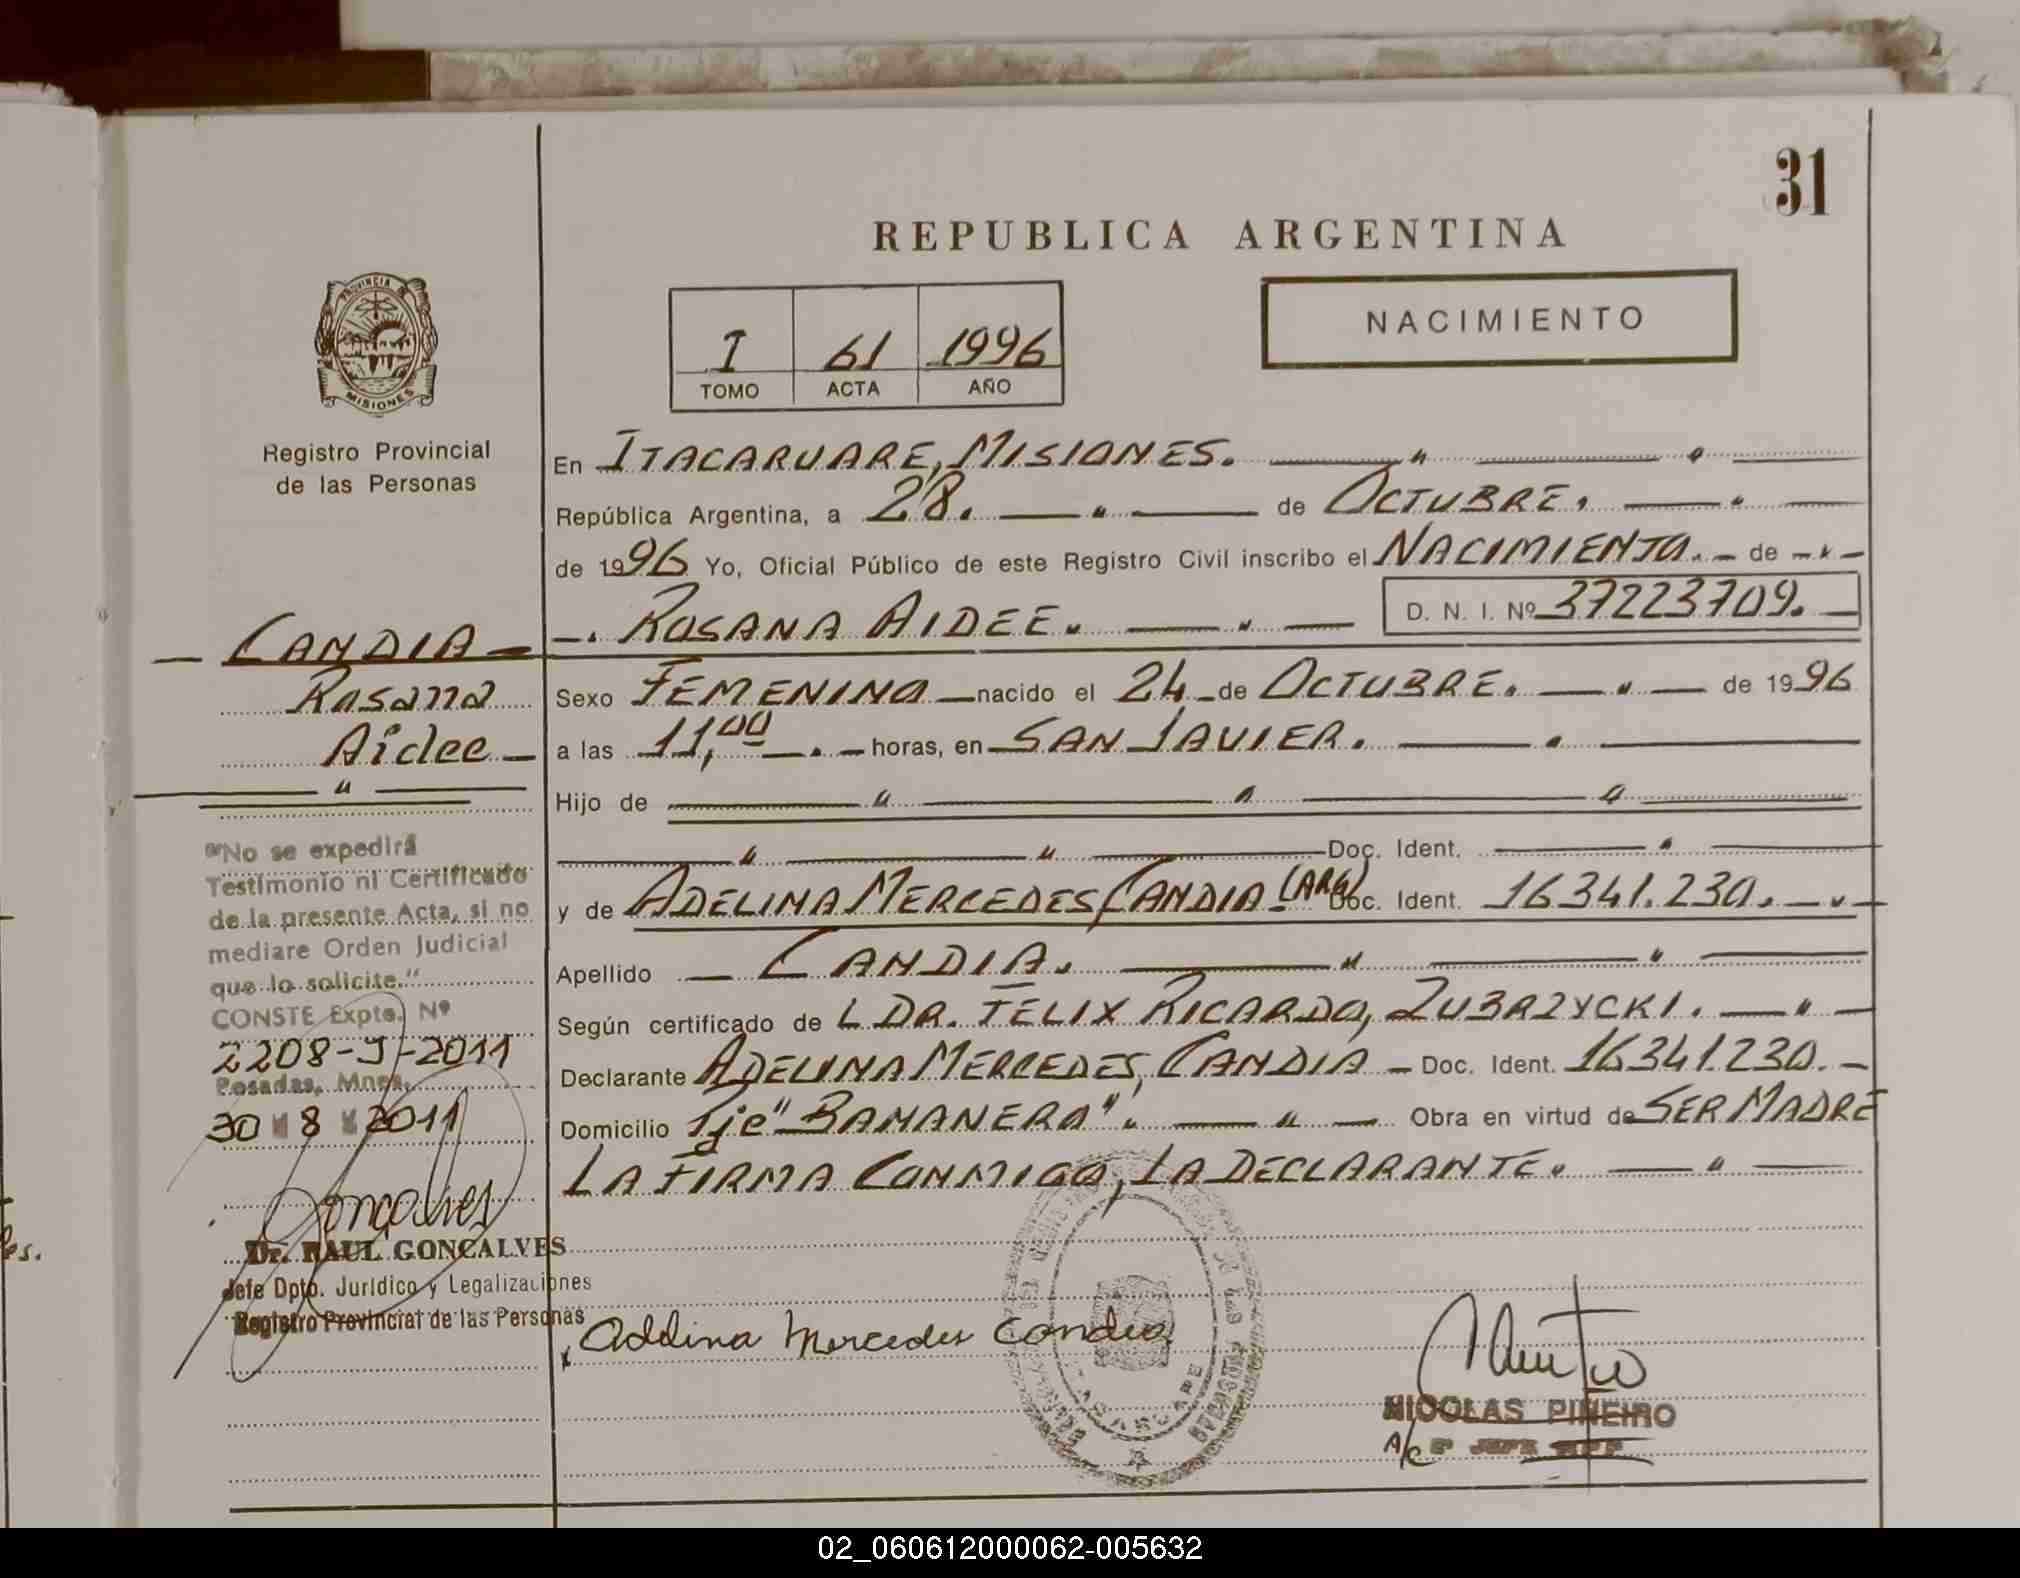 31
REPUBLICA ARGENTINA
NACIMIENTO
I 61 1996
TOMO ACTA AÑO
PROVINCIA DE
MISIONES
Registro Provincial
de las Personas
CANDIA
Rosana
Aidee
"No se expedirá
Testimonio ni Certificado
de la presente Acta, si no
mediare Orden Judicial
que lo solicite."
CONSTE Expte. Nº
2208-J-2011
Posadas, Mnes.
30 8 2011
Goncalves
Dr. RAUL GONCALVES
Jefe Dpto. Jurídico y Legalizaciones
Registro Provincial de las Personas
En ITACARUARE, MISIONES.
República Argentina, a 28. de OCTUBRE.
de 1996 Yo, Oficial Público de este Registro Civil inscribo el NACIMIENTO. de
ROSANA AIDEE. D. N. I. Nº 37223709.
Sexo FEMENINO nacido el 24 de OCTUBRE. de 1996
a las 11,00 horas, en SAN JAVIER.
Hijo de
Doc. Ident.
y de ADELINA MERCEDES, CANDIA (ARG) Doc. Ident. 16341.230.
Apellido CANDIA.
Según certificado de L DR. FELIX RICARDO, ZUBRZYCKI.
Declarante ADELINA MERCEDES, CANDIA Doc. Ident. 16341.230.
Domicilio Pje "BAMANERO". Obra en virtud de SER MADRE
LA FIRMA CONMIGO, LA DECLARANTE.
Adelina Mercedes Candia
NICOLAS PIÑEIRO
A/C
02_060612000062-005632